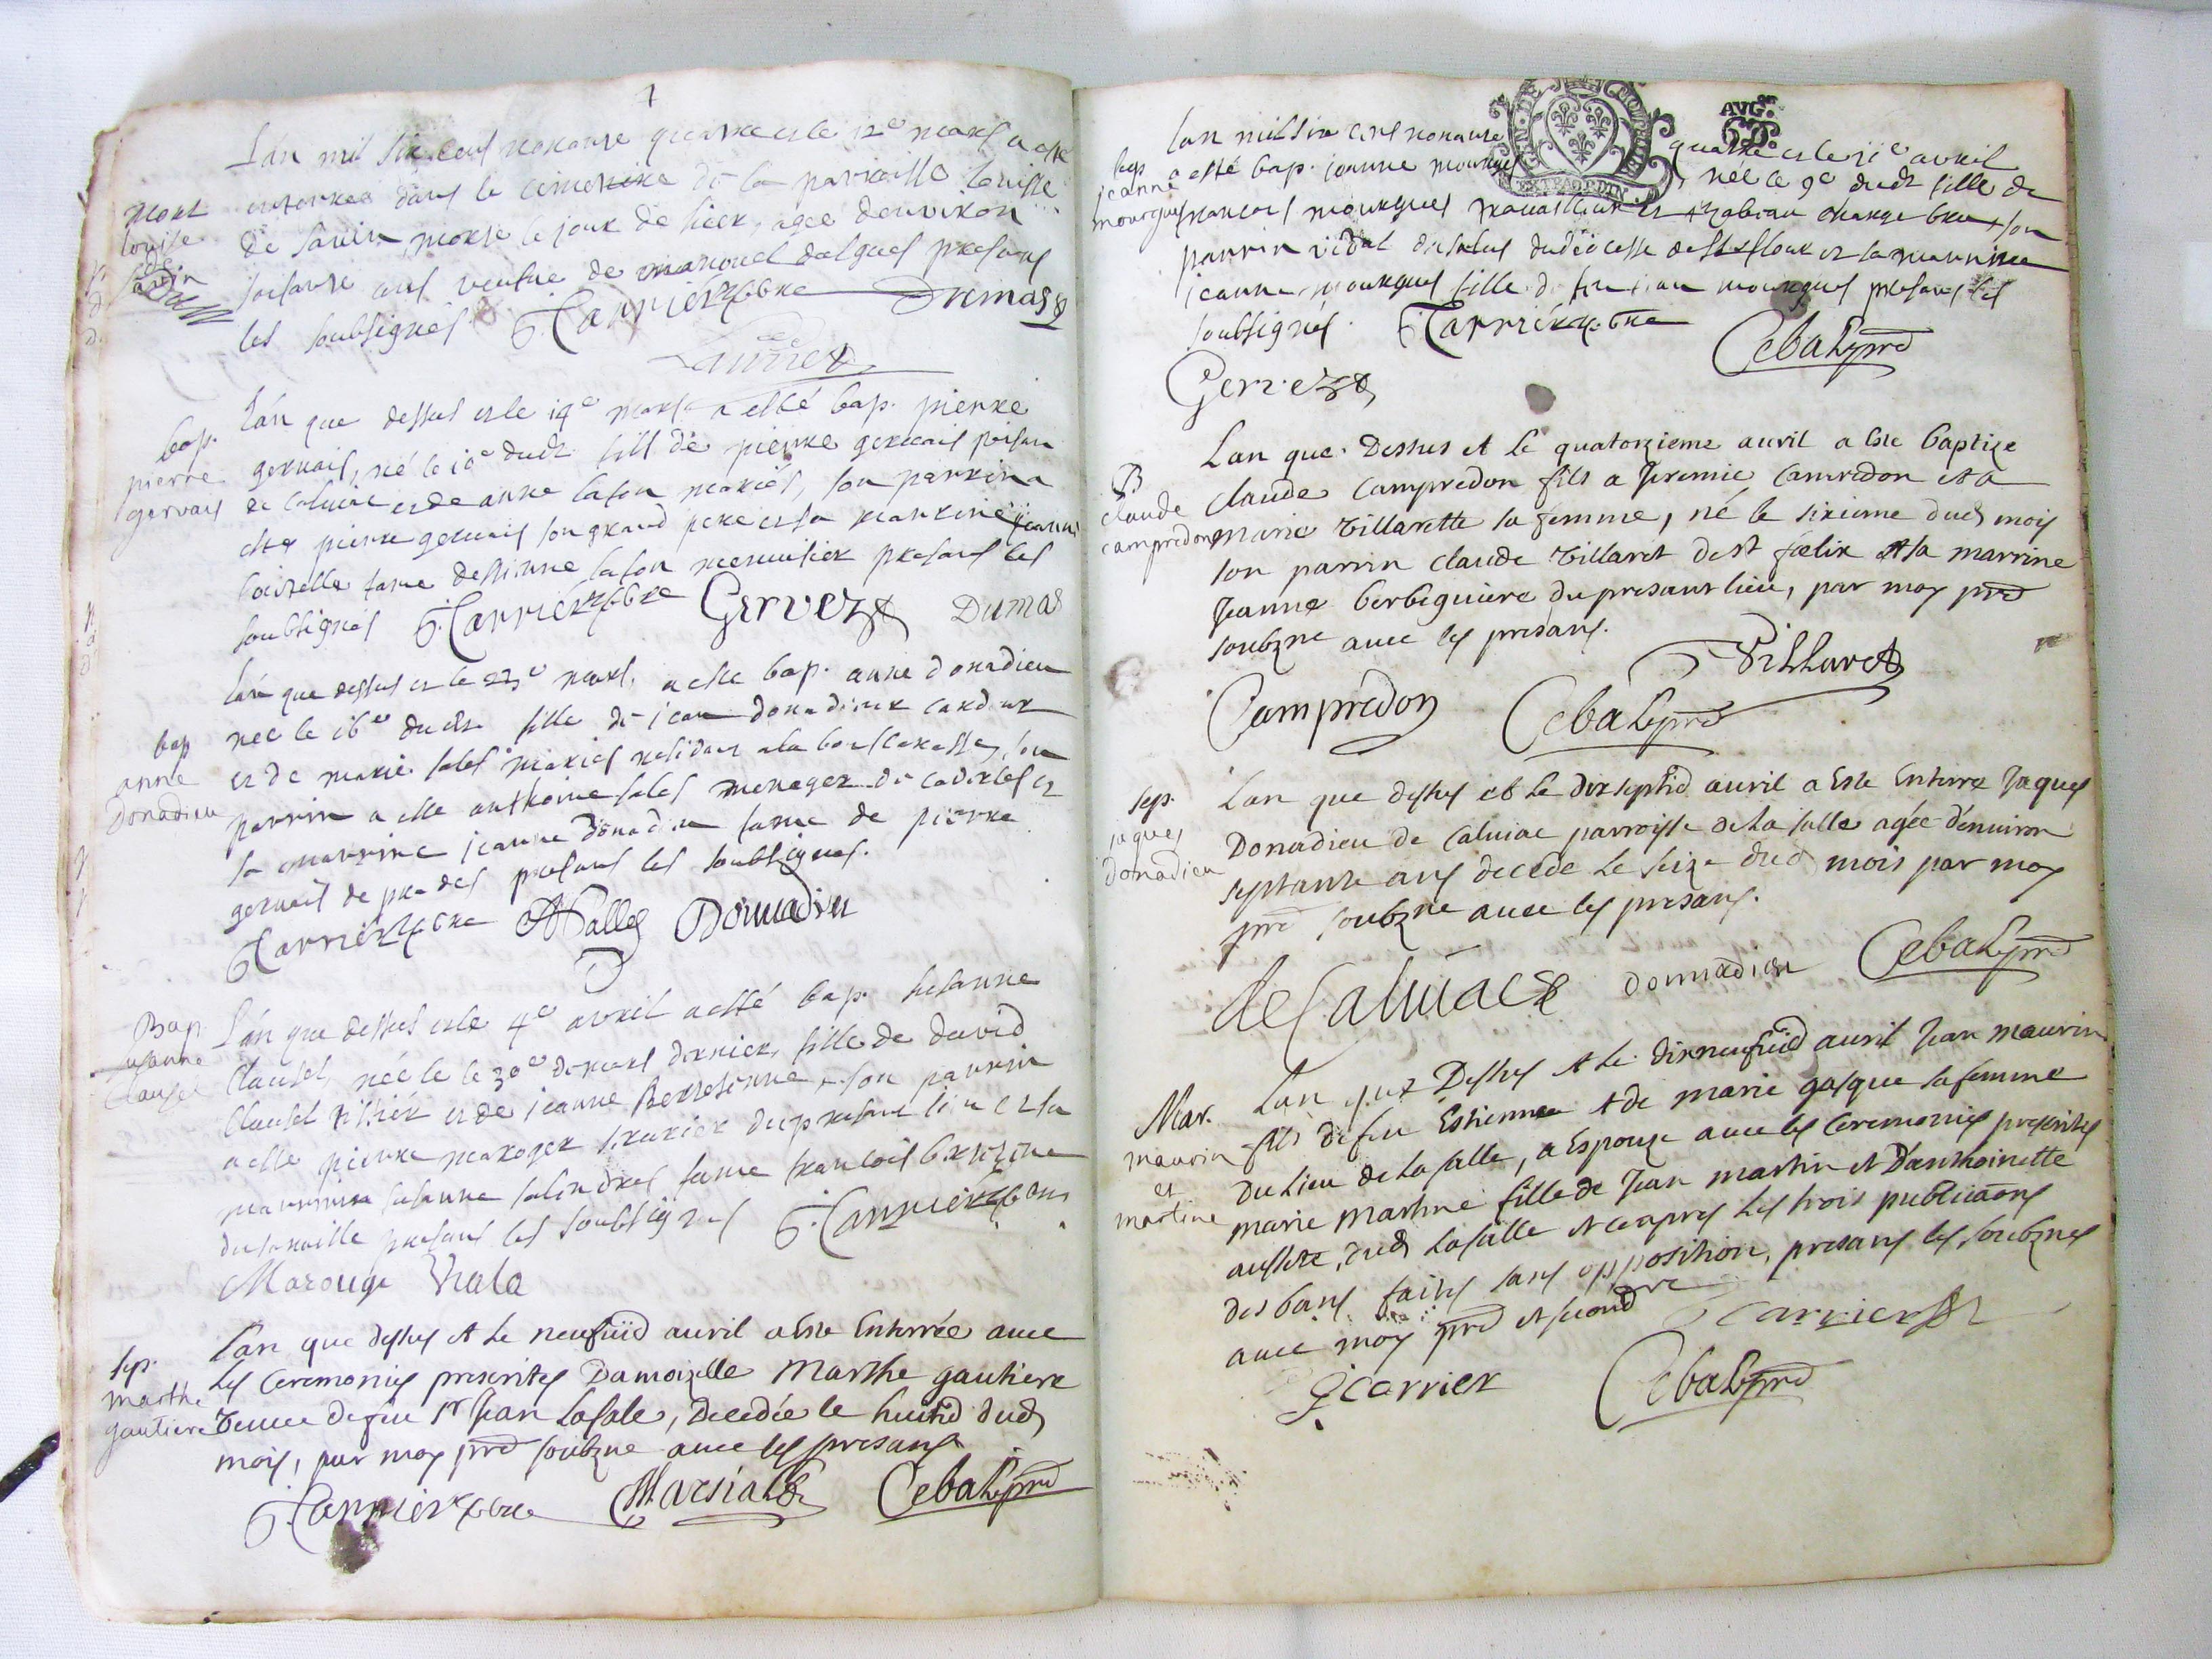 Mort
louise
de
savin
L'an mil six cens nonante quatre et le 12e mars a esté
enterrée dans le cimetiere de la parroisse louise
de savin, morte le jour de hier, agee denviron
soisante ans veufue de manouel dalgues presans
les soubsignés Carrier Dumas
bap.
pierre
gervais
L'an que dessus et le 14e mars a esté bap. pierre
gervais, né le 10e dudt fils de pierre gervais
de calviac et de anne lafon mariés, son parrin a
esté pierre gervais son grand pere et sa marrine jeanne
fame destienne lafon menuisier presans les
soubsignés Carrier Gervez Dumas
bap
anne
Donadieu
L'an que dessus et le 23e mars, a esté bap. anne donadieu
née le 16e dudt fille de jean donadieu cardeur
et de marie sales mariés residans a la, son
parrin a esté anthoine sales menager de et
sa marrine jeanne donadieu fame de pierre
gervais de prades presans les soubsignes.
Carrier Salles Donnadieu
Bap
susanne
Clausel
L'an que dessus et le 4e avril a esté bap. susanne
Clausel, née le le 30e de mars dernier, fille de david
Clausel et de jeanne, son parrin
a esté pierre maroger du presant lieu et sa
marrine susanne salendres fame francois
presans les soubsignes Carrier
Marouge Viala
sep.
marthe
gautiere
L'an que dessus et le neufuie avril a este Enterrée avec
les Ceremonies prescrites Damoizelle Marthe gautiere
veuve de feu sr Jean Lasale, Decedée le huitie dud
mois, par moy pre soubzne avec les presans
Carrier Marsial Cebal pre
bap
jeanne
mourgues
L'an mil six cens nonante quatre et le 11e avril
a esté bap. jeanne mourgues née le 9e dudt fille de
francois mourgues travailleur et, son
parrin vidal du diocesse de st flour et la marrine
jeanne mourgues fille de feu jean mourgues presans les
soubsignés. Carrier Cebal pre
Gervez
GEN. DE
EXTRAORDIN.
AVG.on
B
claude
campredon
L'an que Dessus et Le quatorzieme avril a este baptize
claude Campredon fils a Jeremie camredon et a
marie Villarette sa femme, né le sixieme dud mois
son parrin claude Villaret de st fælix et sa marrine
Jeanne berbeguiere du presant lieu, par moy pre
soubzne avec les presans.
Campredon Cebal pre Villaret
sep.
jaques
donadieu
L'an que dessus et le dixseptie avril a Este Enterre Jaques
Donadieu de Calviac parroisse de La salle agée d'environ
septante ans decede Le seize dud mois par moy
pre soubzne avec les presans.
de Calviac donnadieu Cebal pre
Mar.
maurin
et
martine
L'an que Dessus et le dixneufuie avril Jean maurin
fils de feu Estienne et de marie gasque sa femme
Du Lieu de La salle, a Espouze avec les Ceremonies prescrites
marie martine fille de Jean martin et D'anthoinette
dud Lasalle et ce apres Les trois publicaons
des bans faites sans opposition, presans les soubznes
avec moy pre et
Carrier
Carrier Cebal pre